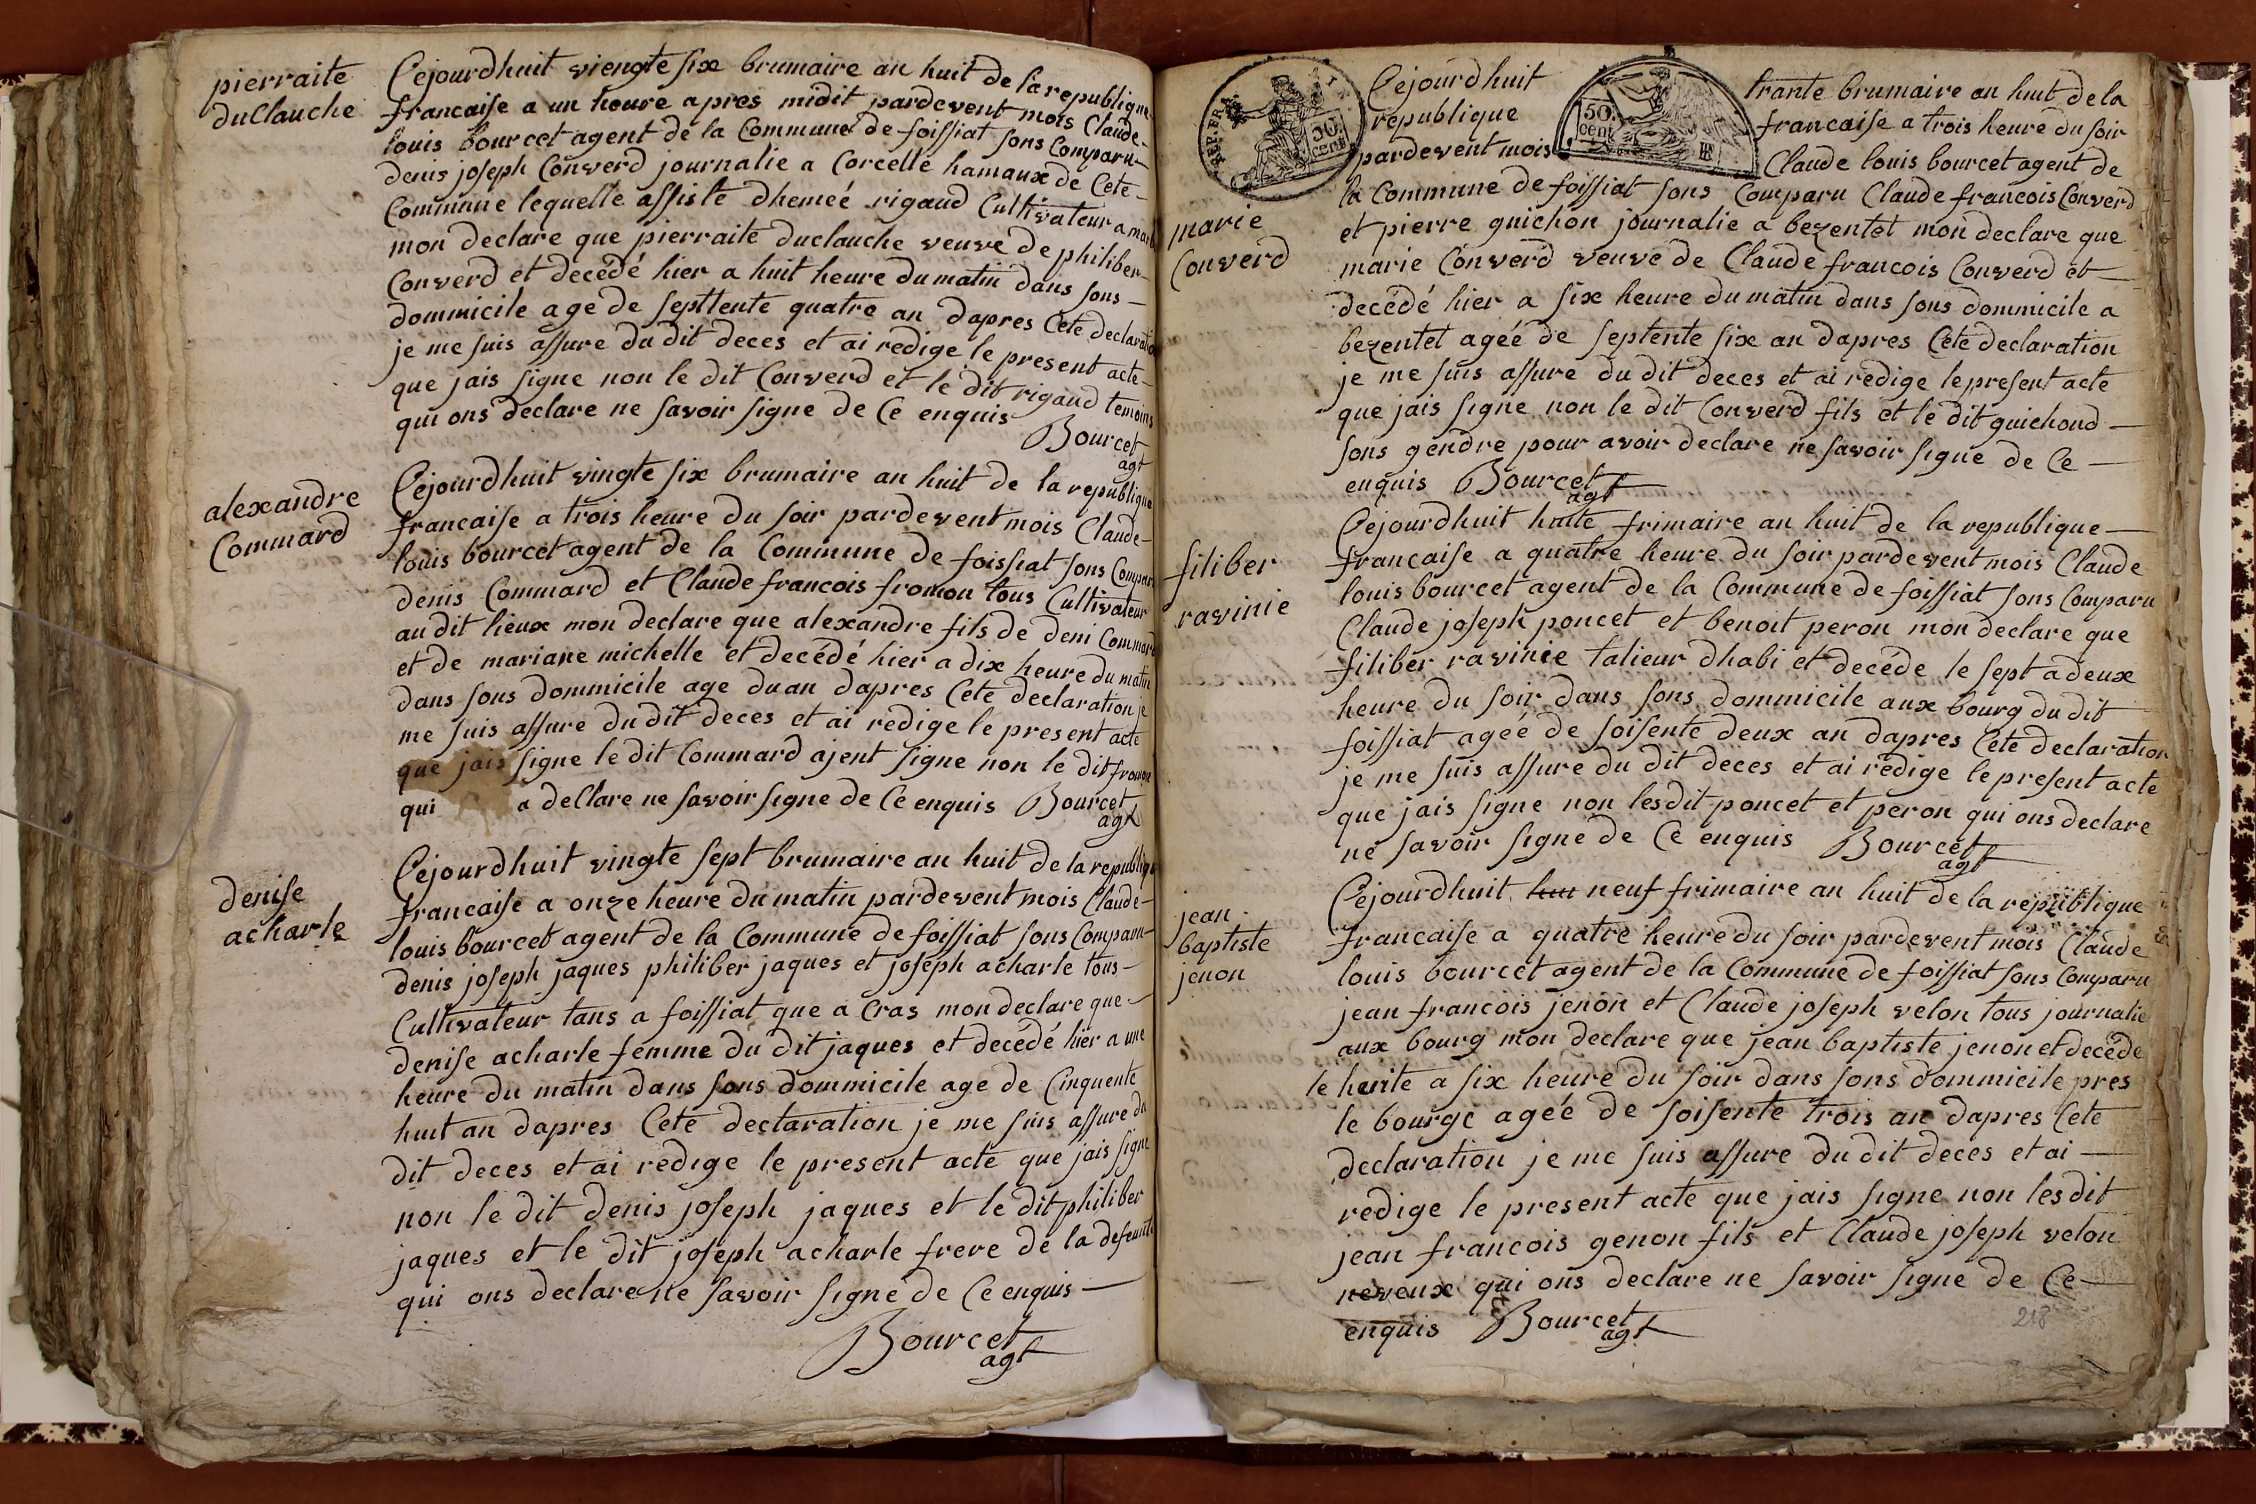 pierraite
duClauche
Cejourdhuit viengte six brumaire an huit de la republique
francaise a un houre apres midit pardevent mois Claude
louis bourcet agent de la Commune de foissiat sons Comparu
denis joseph Converd journalie a Corcelle hamaux de Cete
Commune lequelle assiste dhemeé rigaud Cultivateur a
mon declare que pierraite duclauche veuve de philiber
Converd et decédé hier a huit heure du matin dans sons
dommicile age de septtente quatre an dapres Cete declaration
je me suis assure du dit deces et ai redige le present acte
que jais signe non le dit Converd et le dit rigaud temoins
qui ons declare ne savoir signe de Ce enquis
Bourcet
agt
alexandre
Commard
Cejourdhuit vingte six brumaire an huit de la republique
francaise a trois heure du soir pardevent mois Claude
louis bourcet agent de la Commune de foissiat sons Compar
denis Commard et Claude francois fromon tous Cultivateur
au dit lieux mon declare que alexandre fils de deni Commard
et de mariane michelle et decédé hier a dix heure du matin
dans sons dommicile age duan dapres Cete declaration je
me suis assure du dit deces et ai redige le present acte
que jais signe le dit Commard ajent signe non le dit fromon
qui a declare ne savoir signe de Ce enquis Bourcet
agt
denise
acharle
Cejourdhuit vingte sept brumaire an huit de la republique
francaise a onze heure du matin pardevent mois Claude
louis bourcet agent de la Commune de foissiat sons Comparu
denis joseph jaques philiber jaques et joseph acharle tous
Cultivateur tans a foissiat que a Cras mon declare que
denise acharle femme du dit jaques et decédé hier a une
heure du matin dans sons dommicile age de Cinquente
huit an dapres Cete declaration je me suis assure du
dit deces et ai redige le present acte que jais signe
non le dit denis joseph jaques et le dit philiber
jaques et le dit joseph acharle frere de la defeunte
qui ons declare ne savoir signe de Ce enquis
Bourcet
agt
REP. FRA.
50 cent
50. cent
Cejourdhuit trante brumaire an huit de la
republique francaise a trois heure du soir
pardevent mois Claude louis bourcet agent de
la Commune de foissiat sons Comparu Claude francois Converd
marie
Converd
et pierre guichon journalie a bezentet mon declare que
marie Converd veuve de Claude francois Converd et
decédé hier a six heure du matin dans sons dommicile a
bezentet agée de septente six an dapres Cete declaration
je me suis assure du dit deces et ai redige le present acte
que jais signe non le dit Converd fils et le dit guichond
sons gendre pour avoir declare ne savoir signe de Ce
enquis Bourcet
agt
filiber
ravinie
Cejourdhuit huite frimaire an huit de la republique
francaise a quatre heure du soir pardevent mois Claude
louis bourcet agent de la Commune de foissiat sons Comparu
Claude joseph poncet et benoit peron mon declare que
filiber ravinie talieur dhabi et decéde le sept a deux
heure du soir dans sons dommicile aux bourg du dit
foissiat agée de soisente deux an dapres Cete declaration
je me suis assure du dit deces et ai redige le present acte
que jais signe non lesdit poncet et peron qui ons declare
ne savoir signe de Ce enquis Bourcet
agt
jean
baptiste
jenon
Cejourdhuit hui neuf frimaire an huit de la republique
francaise a quatre heure du soir pardevent mois Claude
louis bourcet agent de la Commune de foissiat sons Comparu
jean francois jenon et Claude joseph velon tous journalie
aux bourg mon declare que jean baptiste jenon et decéde
le huite a six heure du soir dans sons dommicile pres
le bourge agée de soisente trois an dapres Cete
declaration je me suis assure du dit deces et ai
redige le present acte que jais signe non lesdit
jean francois genon fils et Claude joseph velon
neveux qui ons declare ne savoir signe de Ce
enquis Bourcet
agt
218